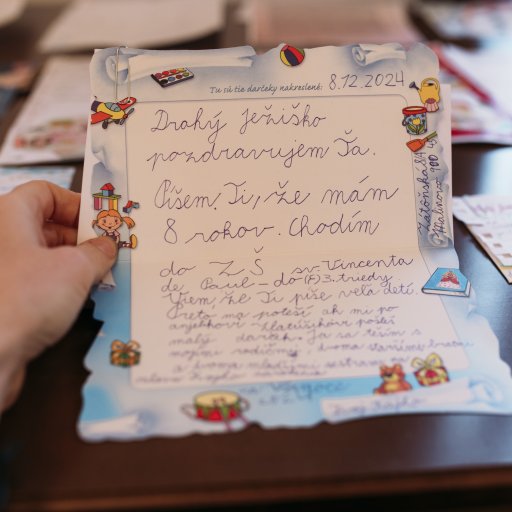 Tu sú tie darčeky nakreslené:
8.12.2024
Drahý Ježiško
pozdravujem Ťa.
Píšem Ti, že mám
8 rokov. Chodím
do ZŠ sv. Vincenta
de Paul - do 3. triedy
Viem, že Ti píše veľa detí.
Preto ma poteší ak mi po
anjelikovi pošleš
malý darček. Ja sa teším s
mojimi rodičmi, dvoma staršími bratmi
a dvoma mladšími sestrami na